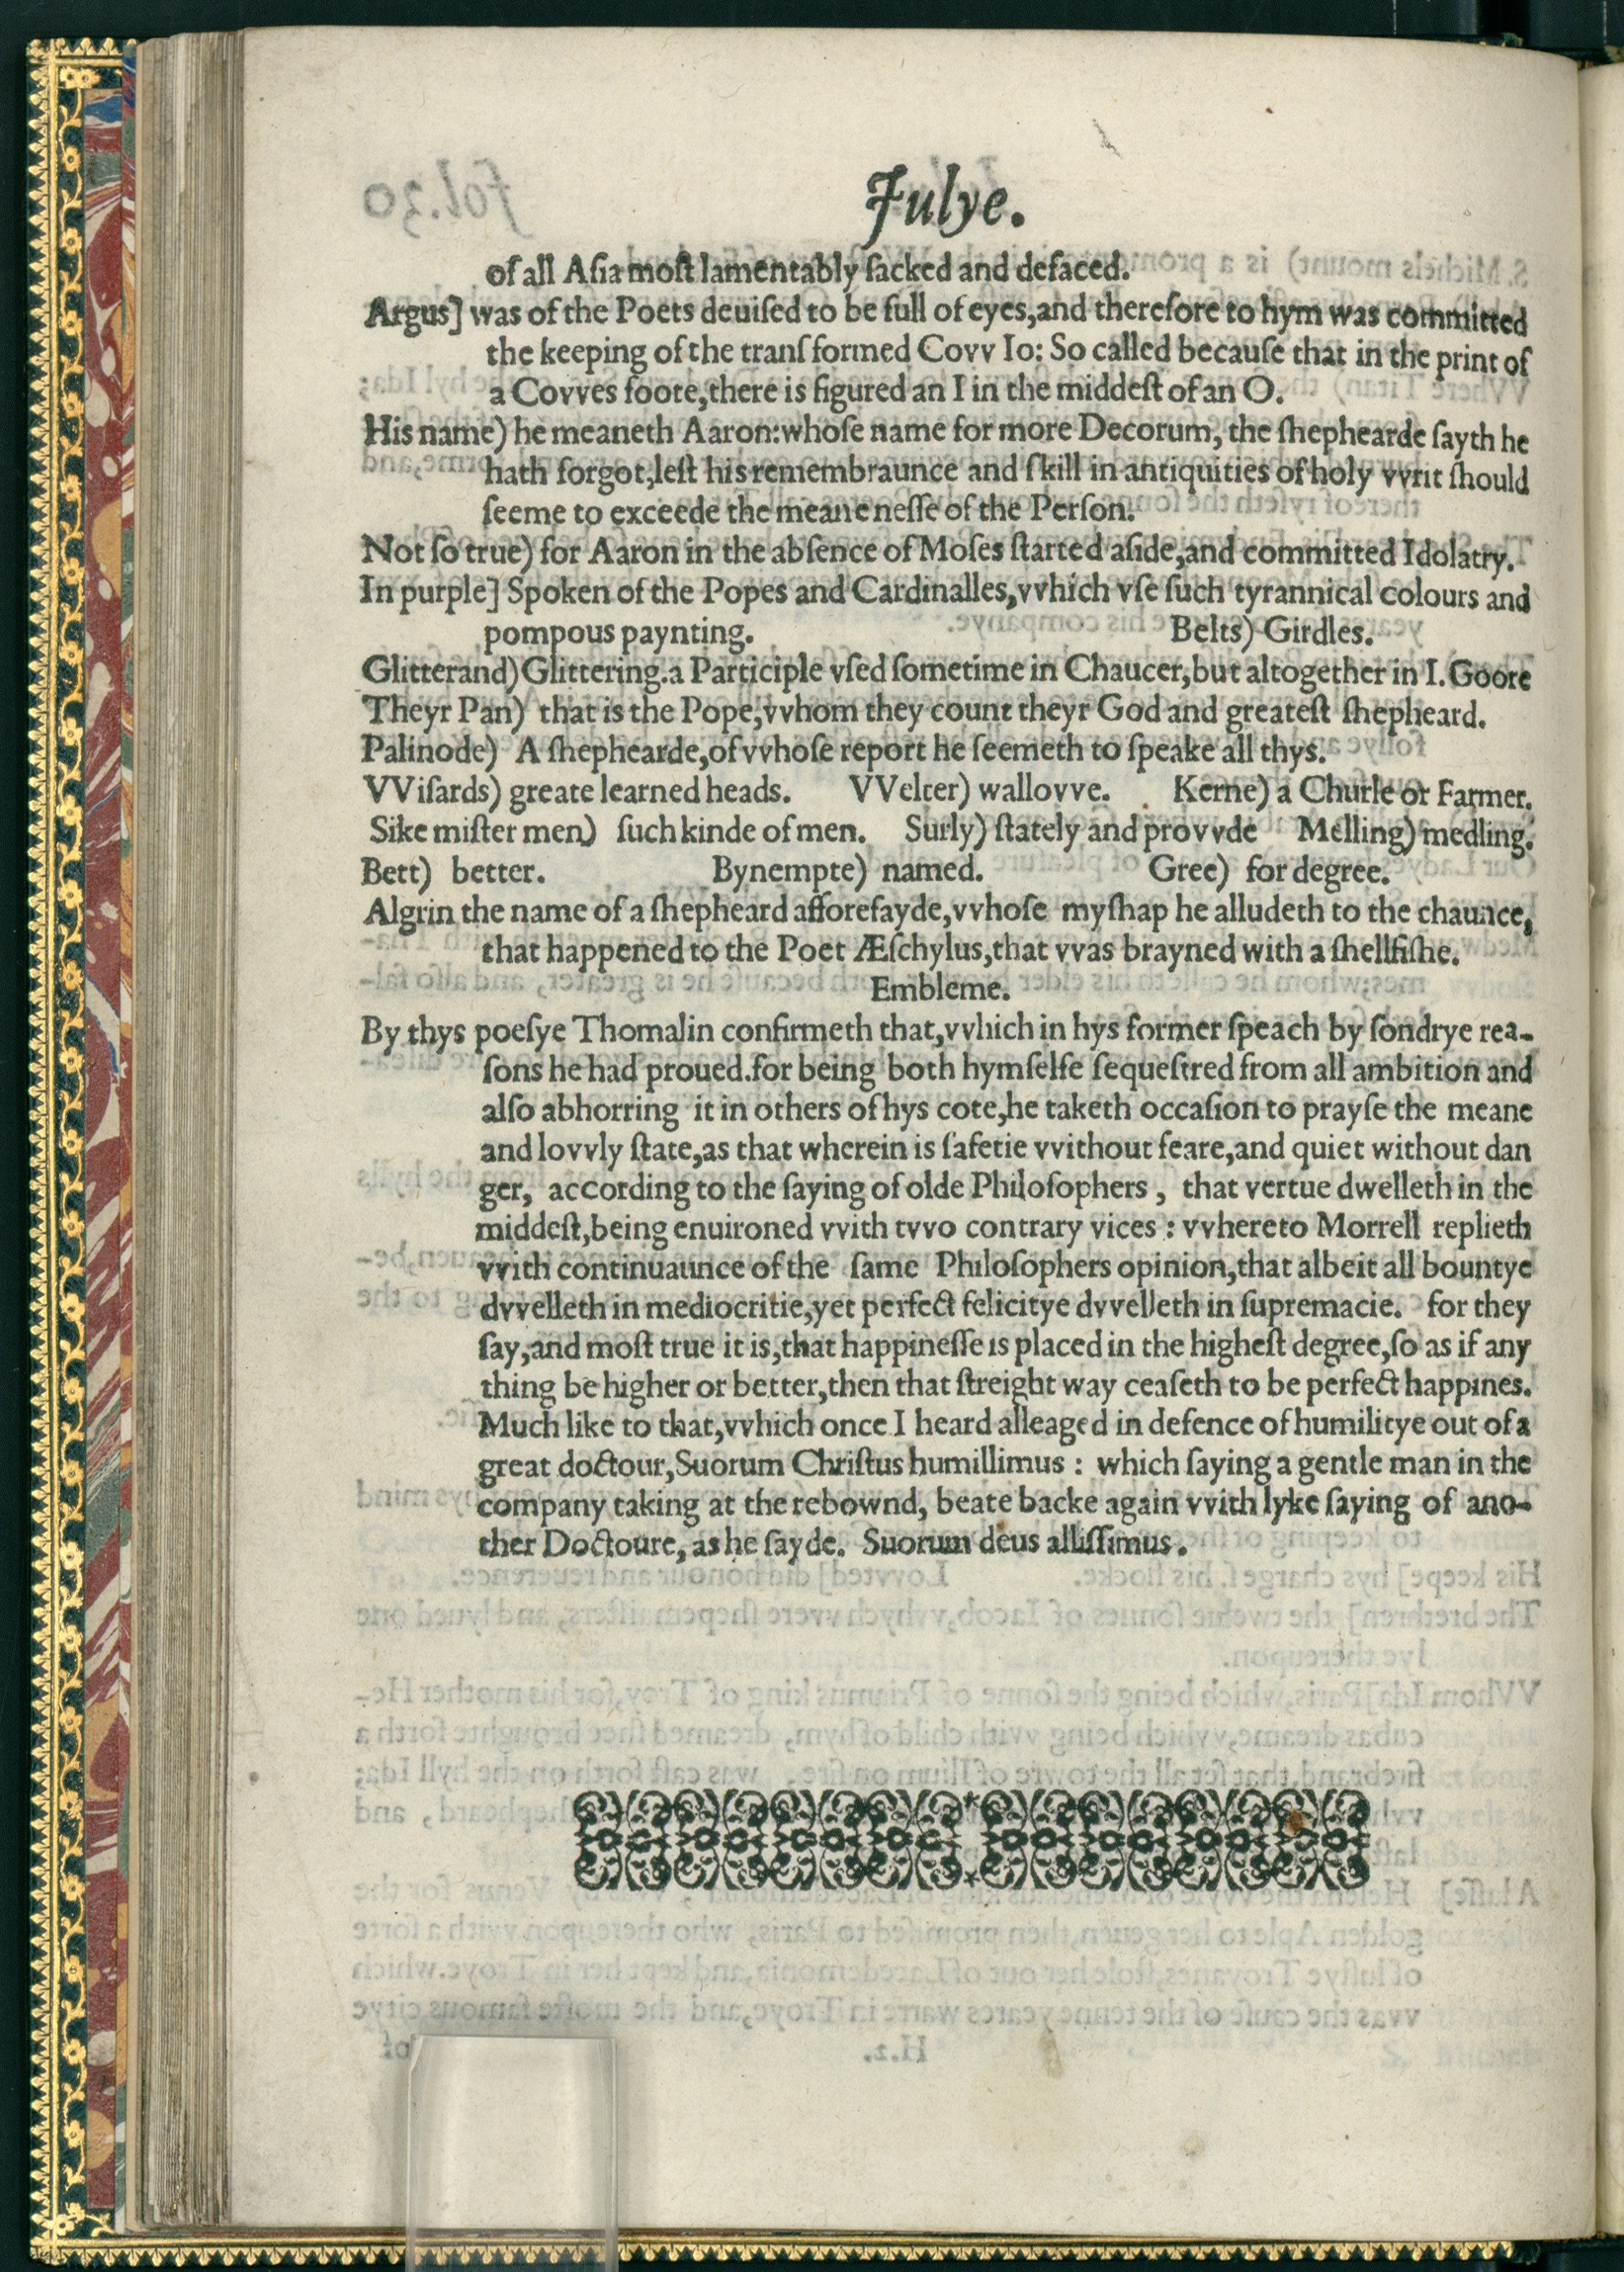 Julye.
of all Aſia moſt lamentably ſacked and defaced.
Argus] was of the Poets deuiſed to be full of eyes,and therefore to hym was committed
the keeping of the tranſformed Covv Io: So called becauſe that in the print of
a Covves foote,there is figured an I in the middeſt of an O.
His name) he meaneth Aaron:whoſe name for more Decorum, the ſhephearde ſayth he
hath forgot,leſt his remembraunce and ſkill in antiquities of holy vvrit ſhould
ſeeme to exceede the meaneneſſe of the Perſon.
Not ſo true) for Aaron in the abſence of Moſes ſtarted aſide,and committed Idolatry.
In purple] Spoken of the Popes and Cardinalles,vvhich vſe ſuch tyrannical colours and
pompous paynting. Belts) Girdles.
Glitterand) Glittering.a Participle vſed ſometime in Chaucer,but altogether in I. Goore
Theyr Pan) that is the Pope,vvhom they count theyr God and greateſt ſhepheard.
Palinode) A ſhephearde,of vvhoſe report he ſeemeth to ſpeake all thys.
VViſards) greate learned heads. VVelter) wallovve. Kerne) a Churle or Farmer.
Sike miſter men) ſuch kinde of men. Surly) ſtately and provvde Melling) medling.
Bett) better. Bynempte) named. Gree) for degree.
Algrin the name of a ſhepheard afforeſayde,vvhoſe myſhap he alludeth to the chaunce,
that happened to the Poet Æſchylus,that vvas brayned with a ſhellfiſhe.
Embleme.
By thys poeſye Thomalin confirmeth that,vvhich in hys former ſpeach by ſondrye rea-
ſons he had proued.for being both hymſelfe ſequeſtred from all ambition and
alſo abhorring it in others of hys cote,he taketh occaſion to prayſe the meane
and lovvly ſtate,as that wherein is ſafetie vvithout feare,and quiet without dan
ger, according to the ſaying of olde Philoſophers , that vertue dwelleth in the
middeſt,being enuironed vvith tvvo contrary vices : vvhereto Morrell replieth
vvith continuaunce of the ſame Philoſophers opinion,that albeit all bountye
dvvelleth in mediocritie,yet perfect felicitye dvvelleth in ſupremacie. for they
ſay,and moſt true it is,that happineſſe is placed in the higheſt degree,ſo as if any
thing be higher or better,then that ſtreight way ceaſeth to be perfect happines.
Much like to that,vvhich once I heard alleaged in defence of humilitye out of a
great doctour,Suorum Chriſtus humillimus : which ſaying a gentle man in the
company taking at the rebownd, beate backe again vvith lyke ſaying of ano-
ther Doctoure, as he ſayde. Suorum deus alliſſimus .